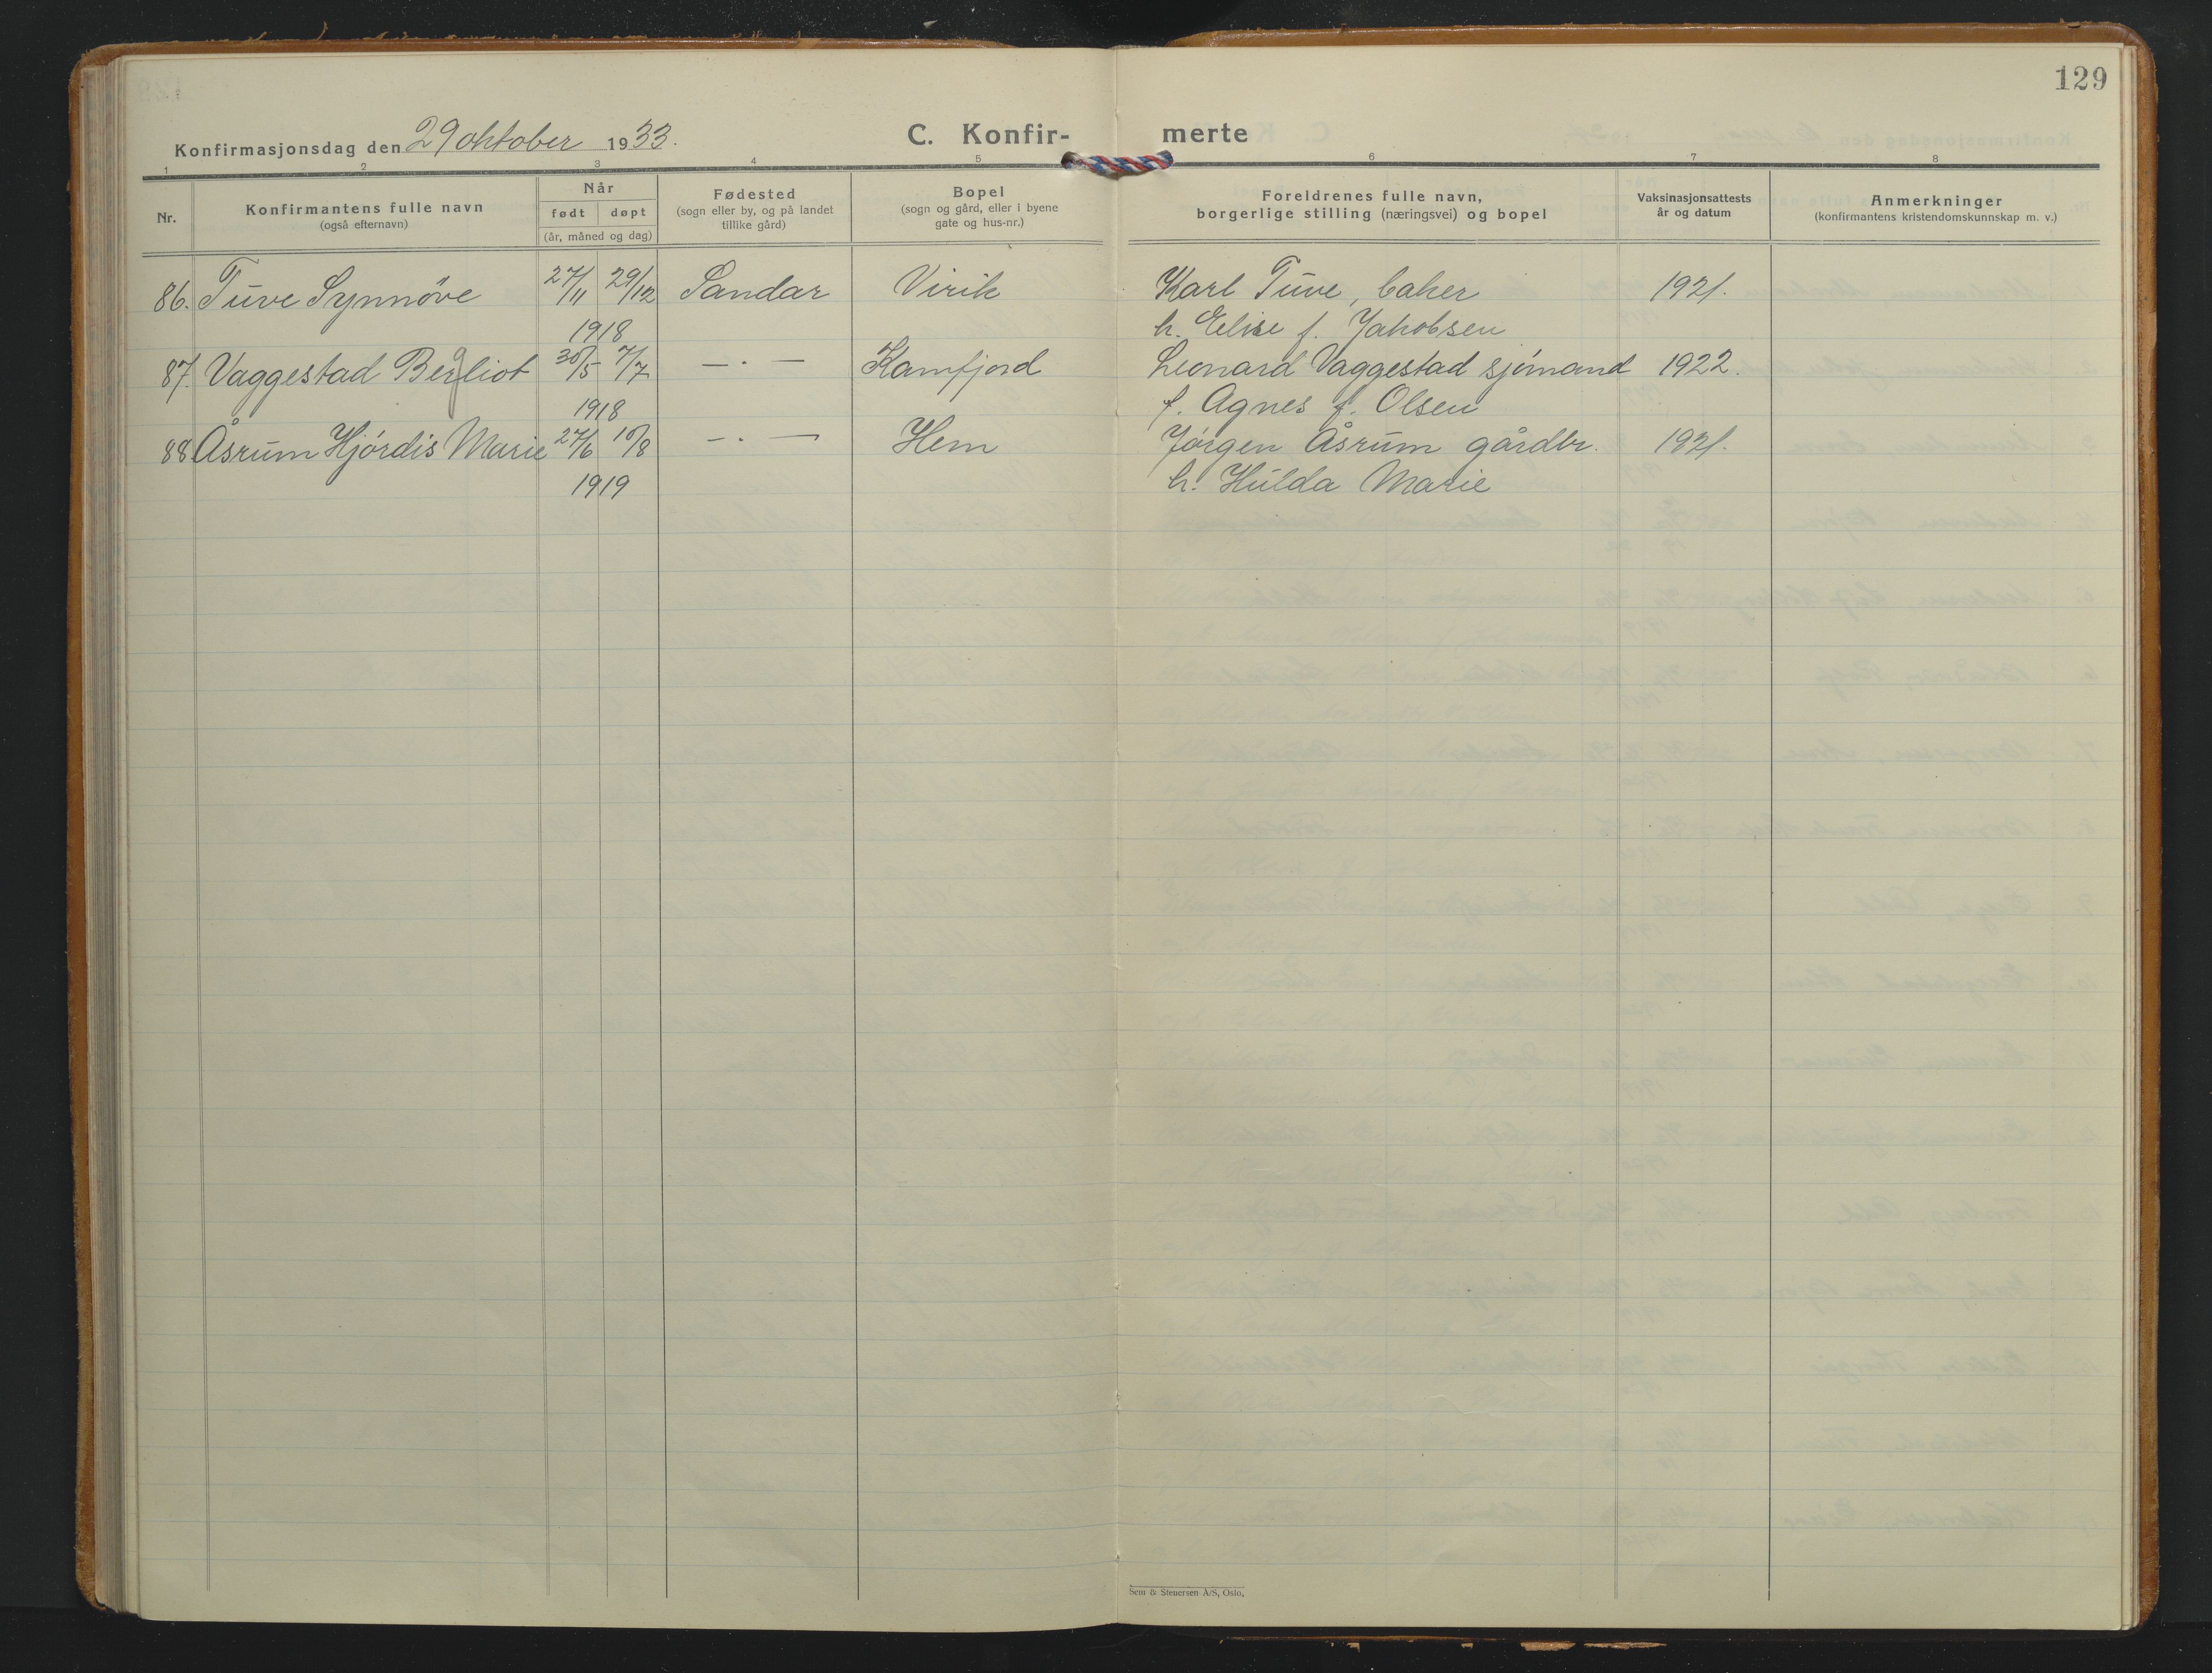 129
Konfirmasjonsdag den 29 oktober 1933.
C. Konfir-merte
1 2 3 4 5 6 7 8
Nr.
Konfirmantens fulle navn
(også efternavn)
Når
født døpt
(år, måned og dag)
Fødested
(sogn eller by, og på landet
tillike gård)
Bopel
(sogn og gård, eller i byene
gate og hus-nr.)
Foreldrenes fulle navn,
borgerlige stilling (næringsvei) og bopel
Vaksinasjonsattests
år og datum
Anmerkninger
(konfirmantens kristendomskunnskap m. v.)
86. Tuve Synnöve 27/11 29/12 Sandar Virik Karl Tuve, baker 1921.
1918 h. Elise f. Jakobsen
87. Vaggestad Bergliot 30/5 7/7 — . — Kamfjord Leonard Vaggestad sjömand 1922.
1918 f. Agnes f. Olsen
88 Åsrum Hjördis Marie 27/6 10/8 — . — Hem Jörgen Åsrum gårdbr. 1921.
1919 h. Hulda Marie
Sem & Stenersen A/S, Oslo.